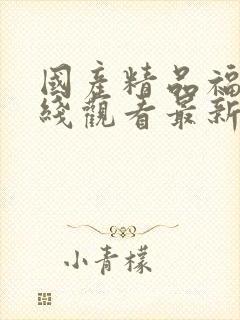 國產精品福
綫觀看最新
小青檬